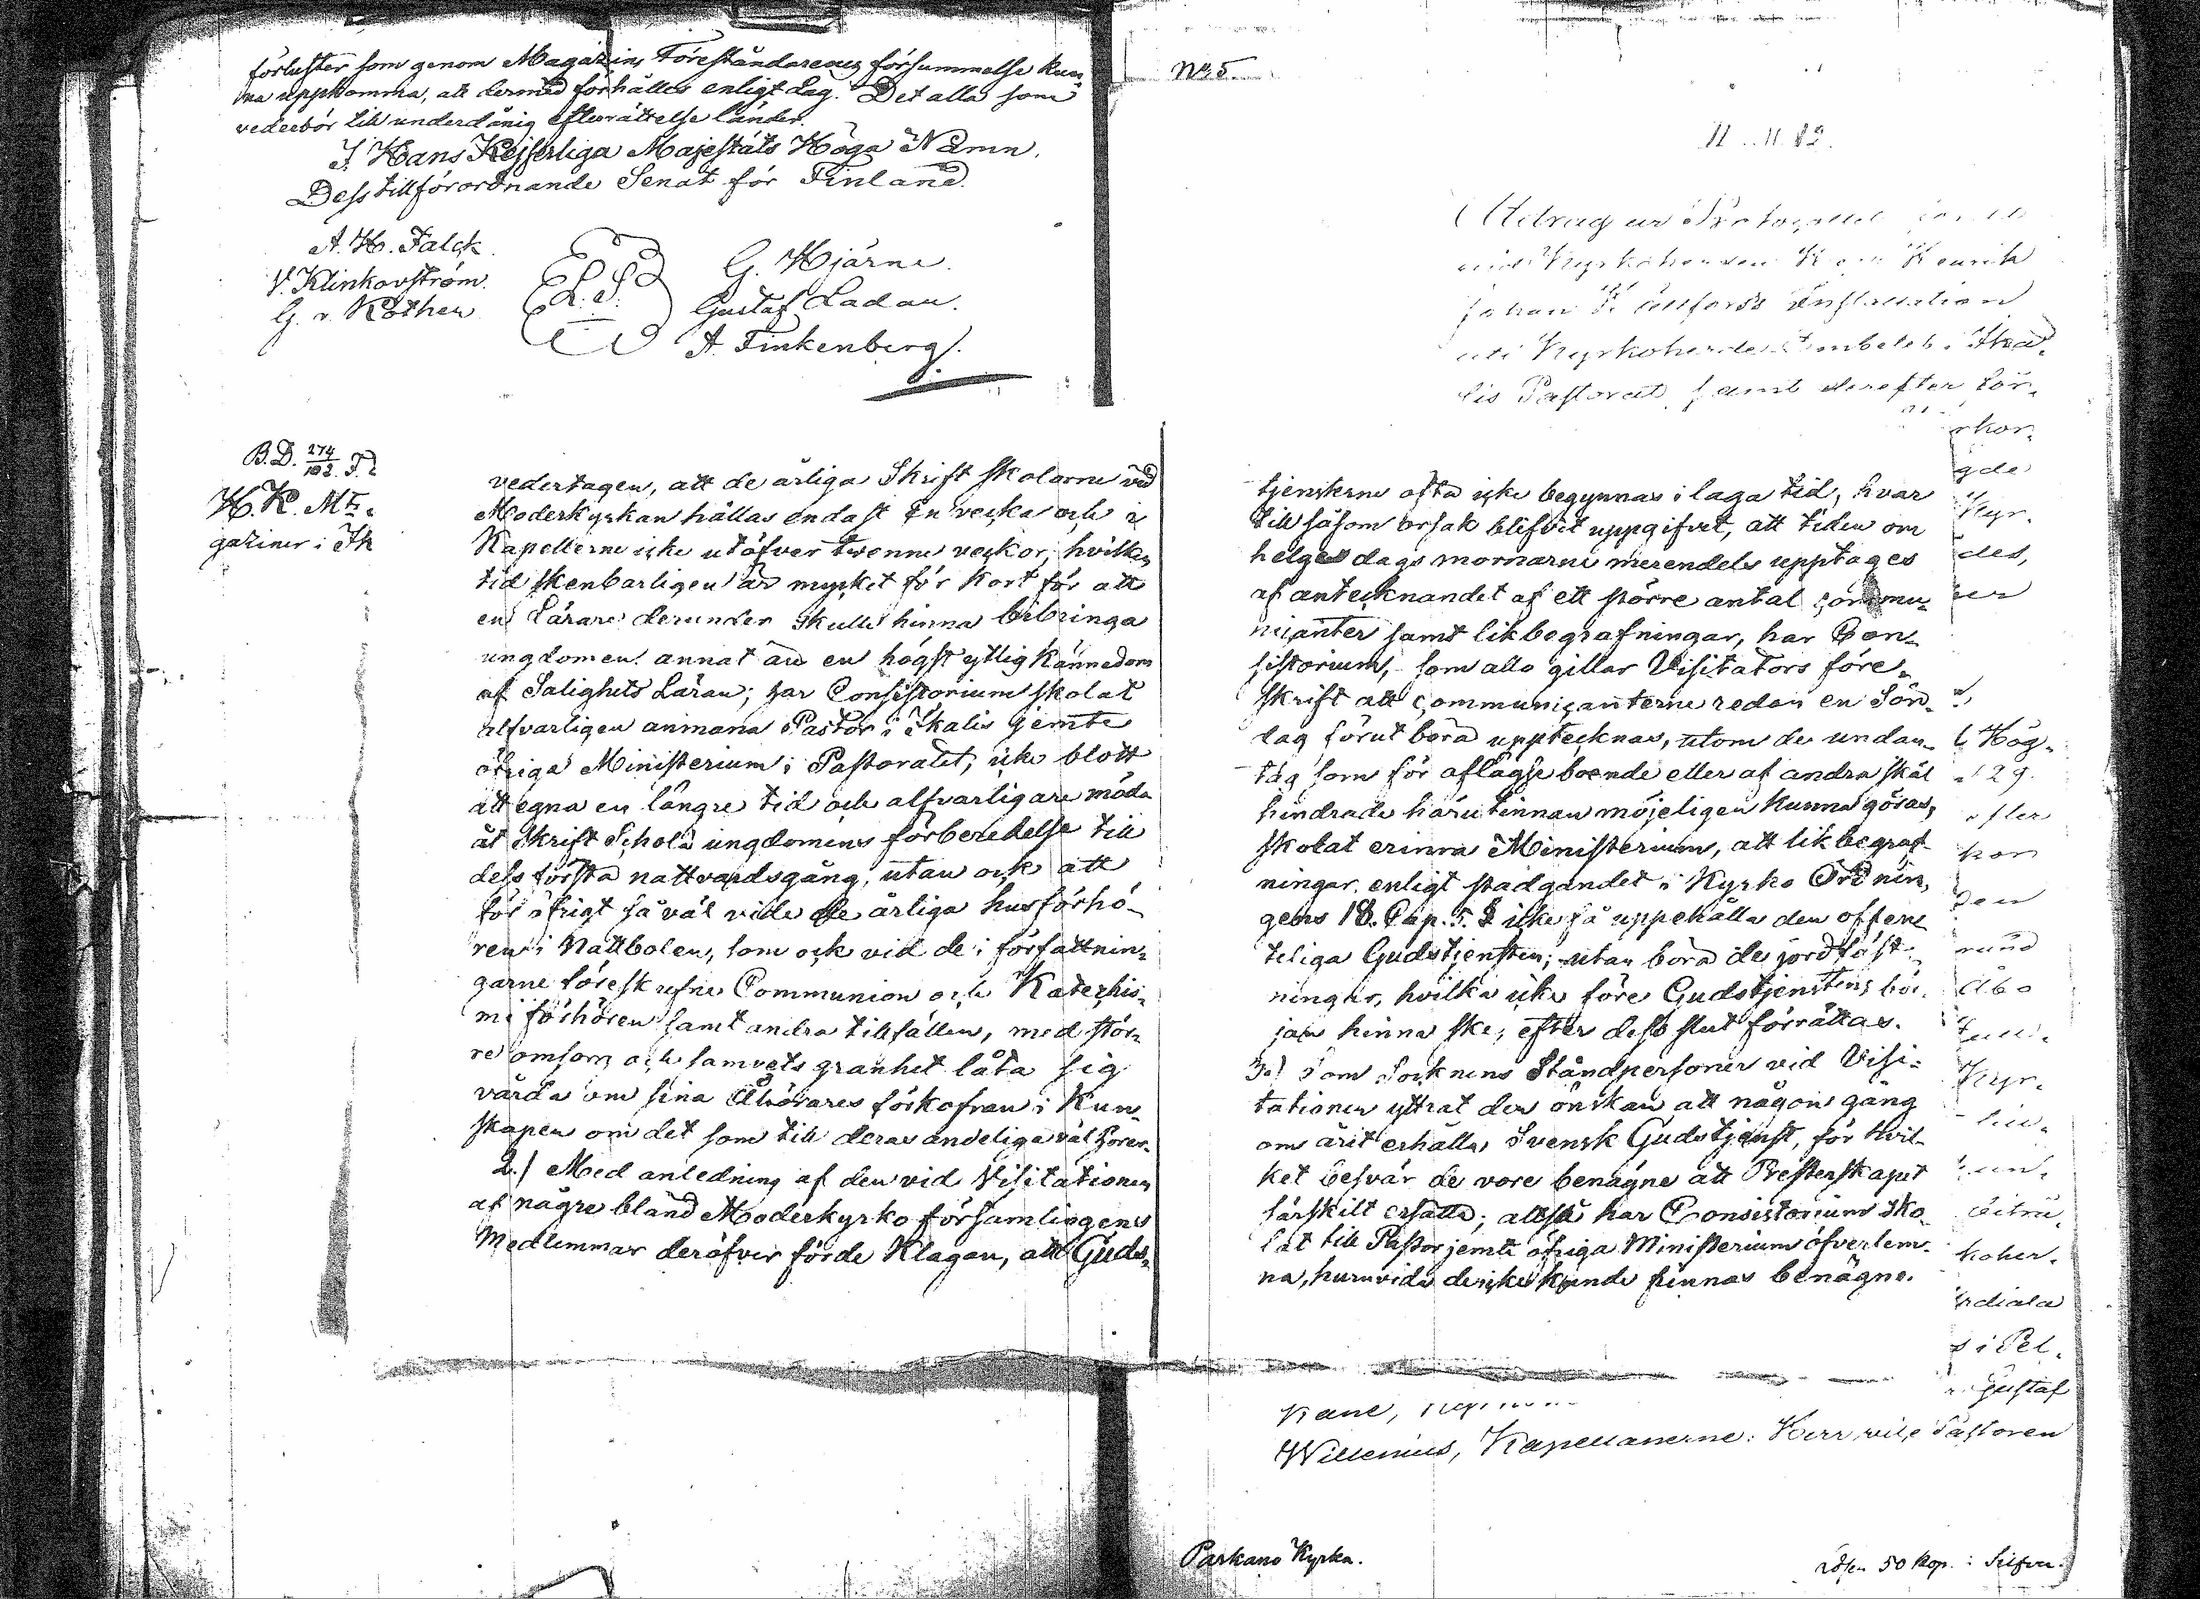 förluster som genom Magazins Föreståndarenes försummelse kun-
na uppkomma, att dermed förhålles enligt Lag. Det alla som
vederbör till underdånig efterrättelse länder.
I Hans Kejserliga Majestäts Höga Namn.
Dess tillförordnande Senat för Finland.
A. H. Falck.
V. Klinkovström.
G. v. Rothen
L. S.
G. Hjärne.
Gustaf Ladau.
A. Finkenberg.
B.D. 274/102.
H. K. Mts.
gaziner i Ik
vedertagen, att de årliga Skrift skolorne vid
Moderkyrkan hållas endast En vecka och i
Kapellerne icke utöfver twenne veckor, hvilken
tid skenbarligen är mycket för kort för att
en Lärare derunder skulle hinna bibringa
ungdomen annat än en högst ytlig kännedom
af Salighets Läran; har Consistorium skolat
alfvarligen anmana Pastor i Ikalis jemte
öfriga Ministerium i Pastoratet, icke blott
att egna en längre tid och alfvarligare möda
åt Skrift Schole ungdomens förberedelse till
dess första nattvardsgång, utan ock att
för öfrigt så väl vid de årliga husförhö-
ren i Nattbolen, som ock vid de i författnin-
garne föreskrefne Communion och Katechis-
mi förhören samt andra tillfällen, med stör-
re omsorg och samvets granhet låta sig
vårda om sina Åhörares förkofran i Kun-
skapen om det som till deras andeliga väl hörer.
2.) Med anledning af den vid Visitationen
af någre bland Moderkyrko församlingens
Medlemmar deröfver förde Klagan, att Guds-
No 5.
11 .. 11. 82.
Utdrag ur Protocollet
vid Kyrkoherden Henrik
Johan Installation
uti Kyrkoherde Embetet i Ika-
lis Pastorat samt derefter för-
tjensterne ofta icke begynnas i laga tid, hvar
till såsom orsak blifvit uppgifvet, att tiden om
helgedags mornarne merendels upptages
af antecknandet af ett större antal commu-
nicanter samt likbegrafningar, har Con-
sistorium, som allo gillar Visitators före-
skrift att communicanterne redan en Sön-
dag förut böra upptecknas, utom de undan-
tag som för aflägse boende eller af andra skäl
hindrade härutinnan möjeligen kunna göras,
skolat erinra Ministerium, att likbegraf-
ningar, enligt stadgandet i Kyrko Ordnin-
gens 18. Cap. 5. § icke få uppehålla den offent-
teliga Gudstjensten; utan böra de jordfäst-
ningar, hvilka icke före Gudstjenstens bör-
jan hinna ske, efter dess slut förrättas.
3.) Som Socknens Ståndpersoner vid Visi-
tationen yttrat den önskan att någon gång
om året erhålla Svensk Gudstjenst, för hvil-
ket besvär de vore benägne att Presterskapet
särskilt ersätta; altså har Consistorium sko-
lat till Pastor jemte öfriga Ministerium öfverlem-
na, huruvida de icke kunde finnas benägne.
rkor-
gde
Kyr-
des,
Hög-
29.
kor
den
Åbo
Kyr-
koher-
s i Pel-
Gustaf
Willenius, Kapellanerne: Herr vice Pastoren
Parkano Kyrka.
lösen 50 kop. i Silfver.